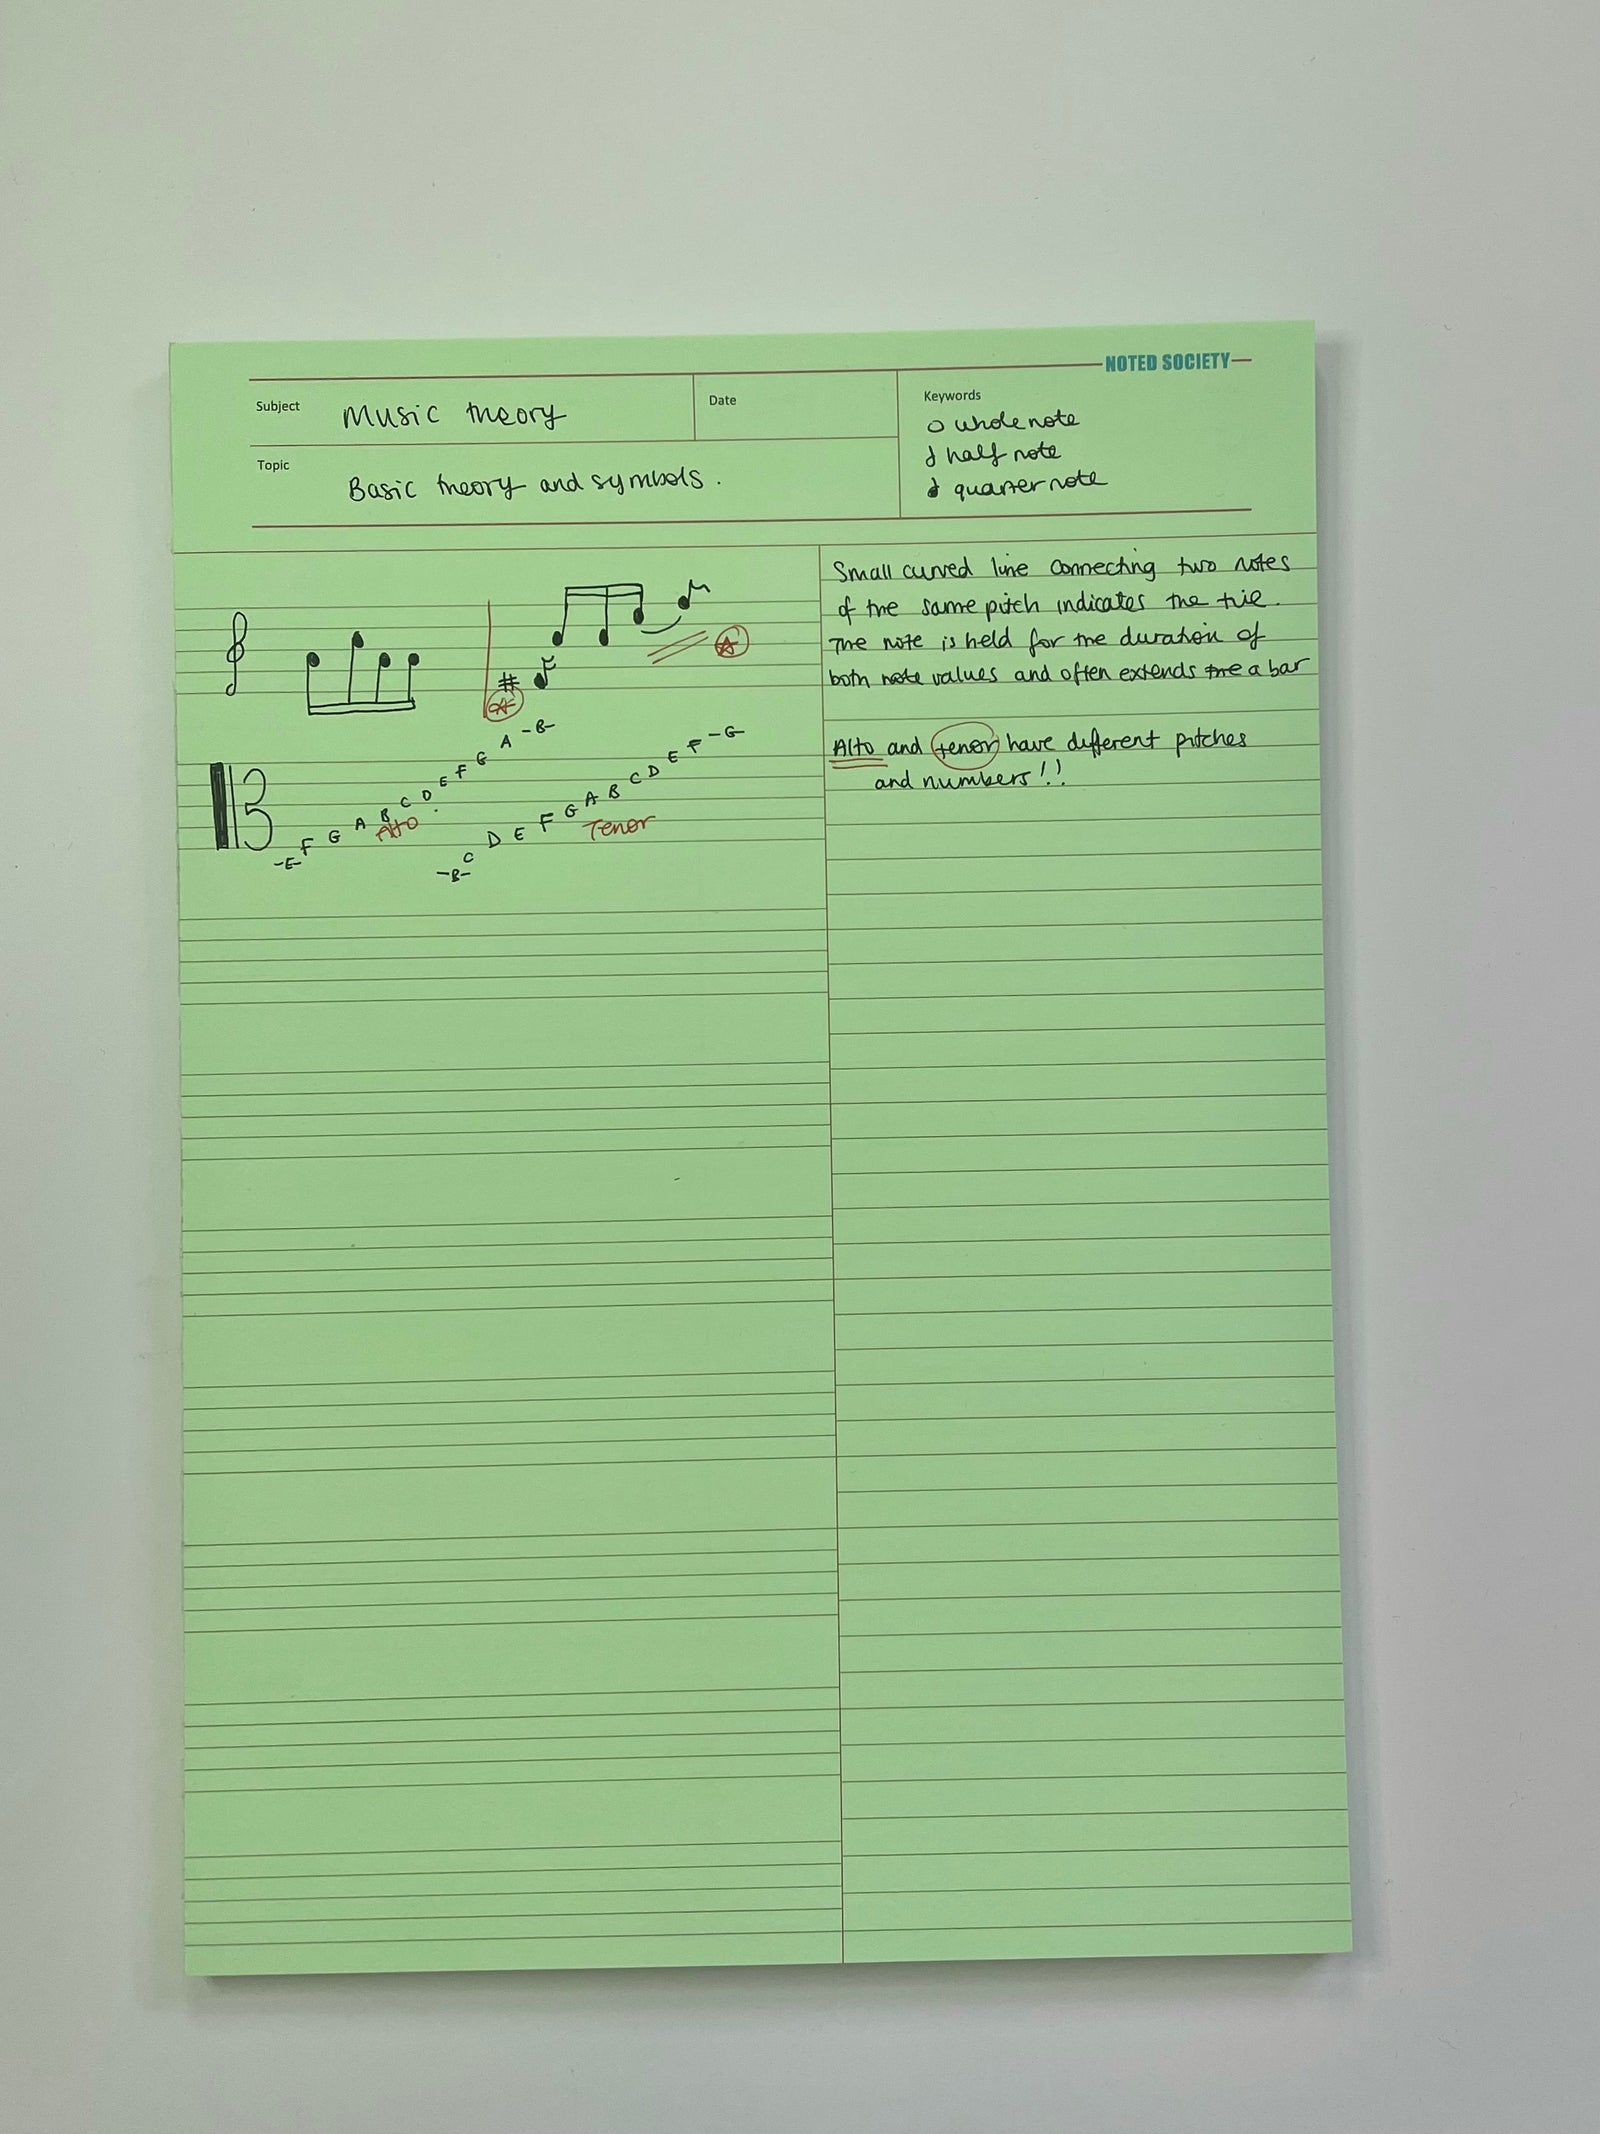 NOTED SOCIETY
Subject Music theory
Date
Keywords
whole note
half note
quarter note
Topic
Basic theory and symbols.
Small curved line connecting two notes
of the same pitch indicates the tie.
The note is held for the duration of
both note values and often extends the a bar
#
Alto and tenor have different pitches
and numbers!!
-E- F G A B C D E F G A -B-
Alto
-B- C D E F G A B C D E F -G-
Tenor